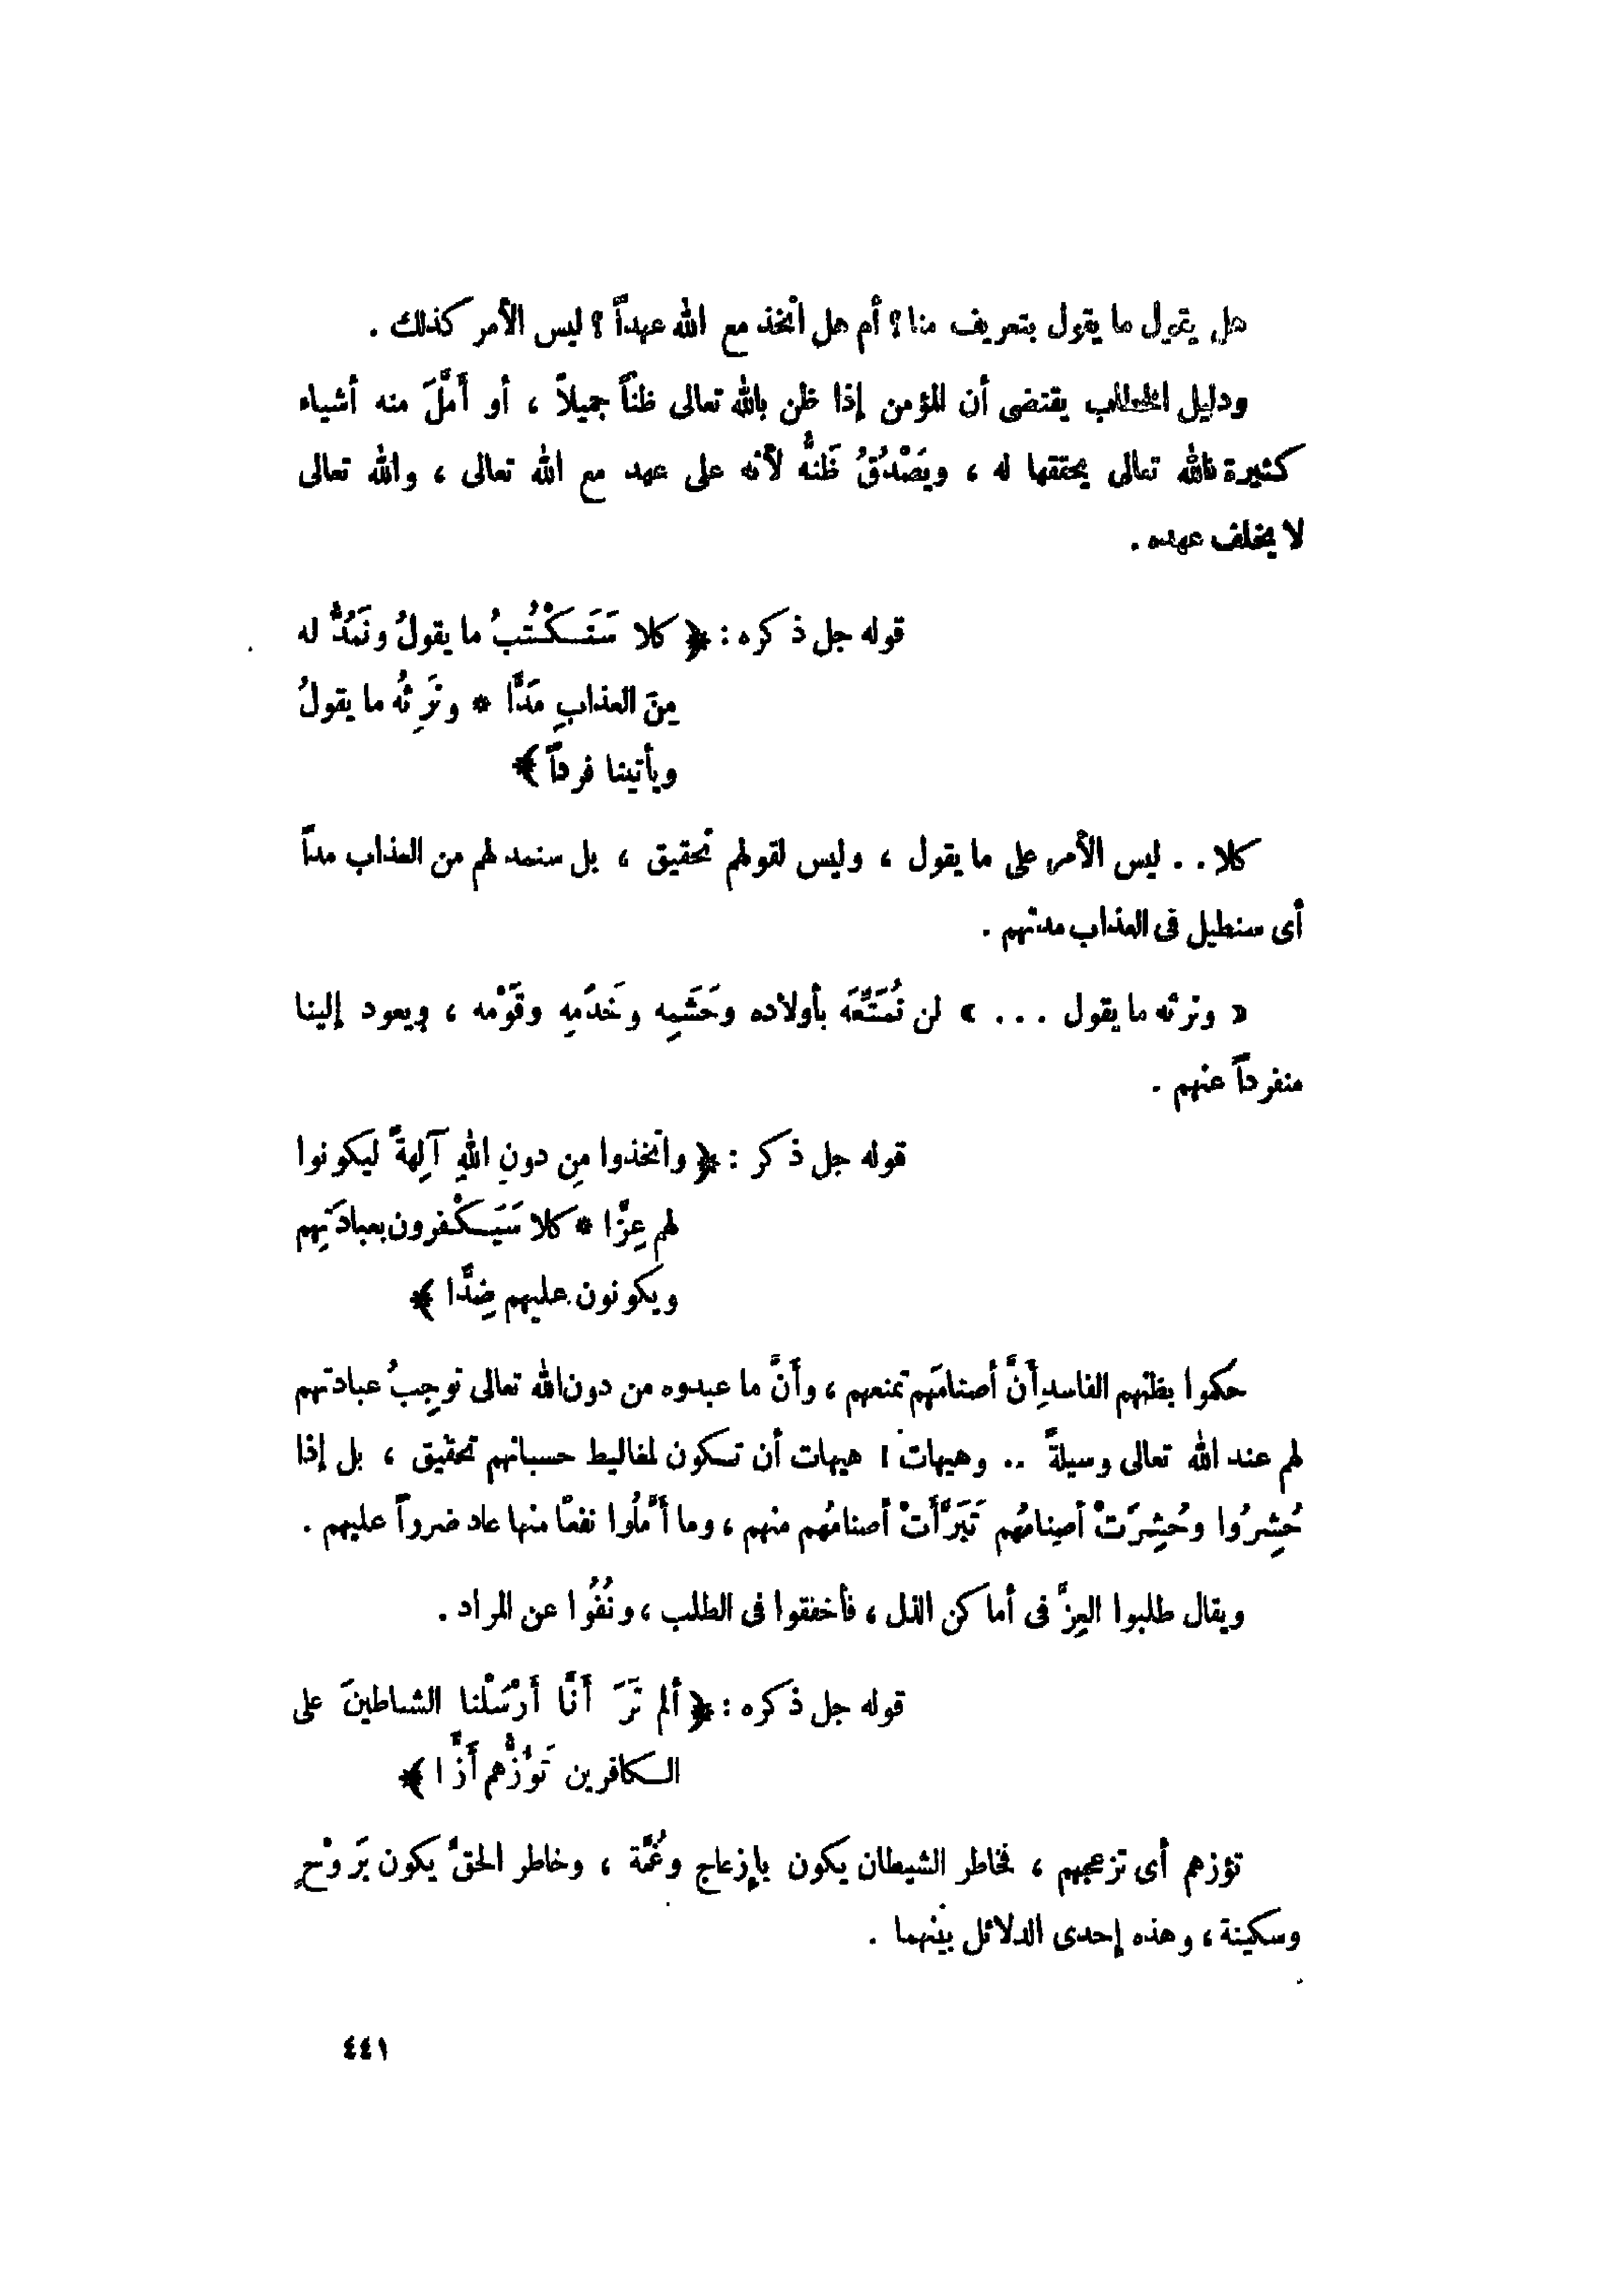 هل يقول ما يقول بتعريف منا؟ أم هل اتخذ مع الله عهداً ؟ ليس الأمر كذلك .
ودليل الخطاب يقتضى أن المؤمن إذا ظن بالله تعالى ظنَّاً جميلاً ، أو أَمَّلَ منه أشياء
كثيرة فالله تعالى يحققها له ، ويَصْدُقُ ظَنهُّ لأنه على عهد مع الله تعالى ، والله تعالى
لا يخلف عهده .
قوله جل ذكره : ﴿ كلا سَنَكْتُبُ ما يقولُ ونَمُدُّ له
مِنَ العذابِ مَدَّا * ونَرِثُه ما يقولُ
ويأتينا فرداً ﴾
كلا . . ليس الأمر على ما يقول ، وليس لقولهم تحقيق ، بل سنمد لهم من العذاب مداً
أى سنطيل فى العذاب مدتهم .
« ونرثه ما يقول . . . » لن نُمَتِّعَه بأولاده وحَشَمِه وخَدَمِه وقَوْمه ، ويعود إلينا
منفرداً عنهم .
قوله جل ذكر : ﴿ واتخذوا مِن دونِ اللهِ آلِهةً ليكونوا
لهم عِزَّا * كلا سَيَكْفرون بعبادَتِهم
ويكونون عليهم ضِدَّا ﴾
حكموا بظنهم الفاسدِ أَنَّ أصنامَهم تمنعهم ، وأَنَّ ما عبدوه من دون الله تعالى توجِبُ عبادتهم
لهم عند الله تعالى وسيلةً .. وهيهات ! هيهات أن تكون لمغاليط حسبانهم تحقيق ، بل إذا
حُشِرُوا وحُشِرَتْ أصنامُهم تَبَرَّأَتْ أصنامُهم منهم ، وما أَمَّلُوا نفعًا منها عاد ضرراً عليهم .
ويقال طلبوا العِزَّ فى أماكن الذل ، فأخفقوا فى الطلب ، ونُفُوا عن المراد .
قوله جل ذكره : ﴿ ألم تَرَ أَنَّا أَرْسَلْنا الشاطينَ على
الكافرين تَؤُزُّهم أَزَّا ﴾
تؤزهم أى تزعجهم ، فخاطر الشيطان يكون بإزعاج وغُمَّة ، وخاطر الحقِّ يكون بَرَوْحٍ
وسكينة ، وهذه إحدى الدلائل بينهما .
٤٤١